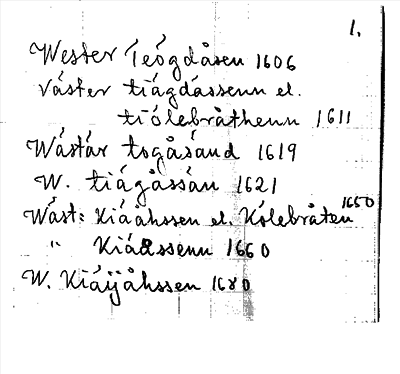 1.
Wester Teógdåsen 1606
Váster tiágdássenn el.
tiólebråthenn 1611
Wástár tsgåsánd 1619
W. tiágåssán 1621
Wást: Kiáåhssen el. Kólebråten 1650
" Kiáåssenn 1660
W. Kiáijåhssen 1680